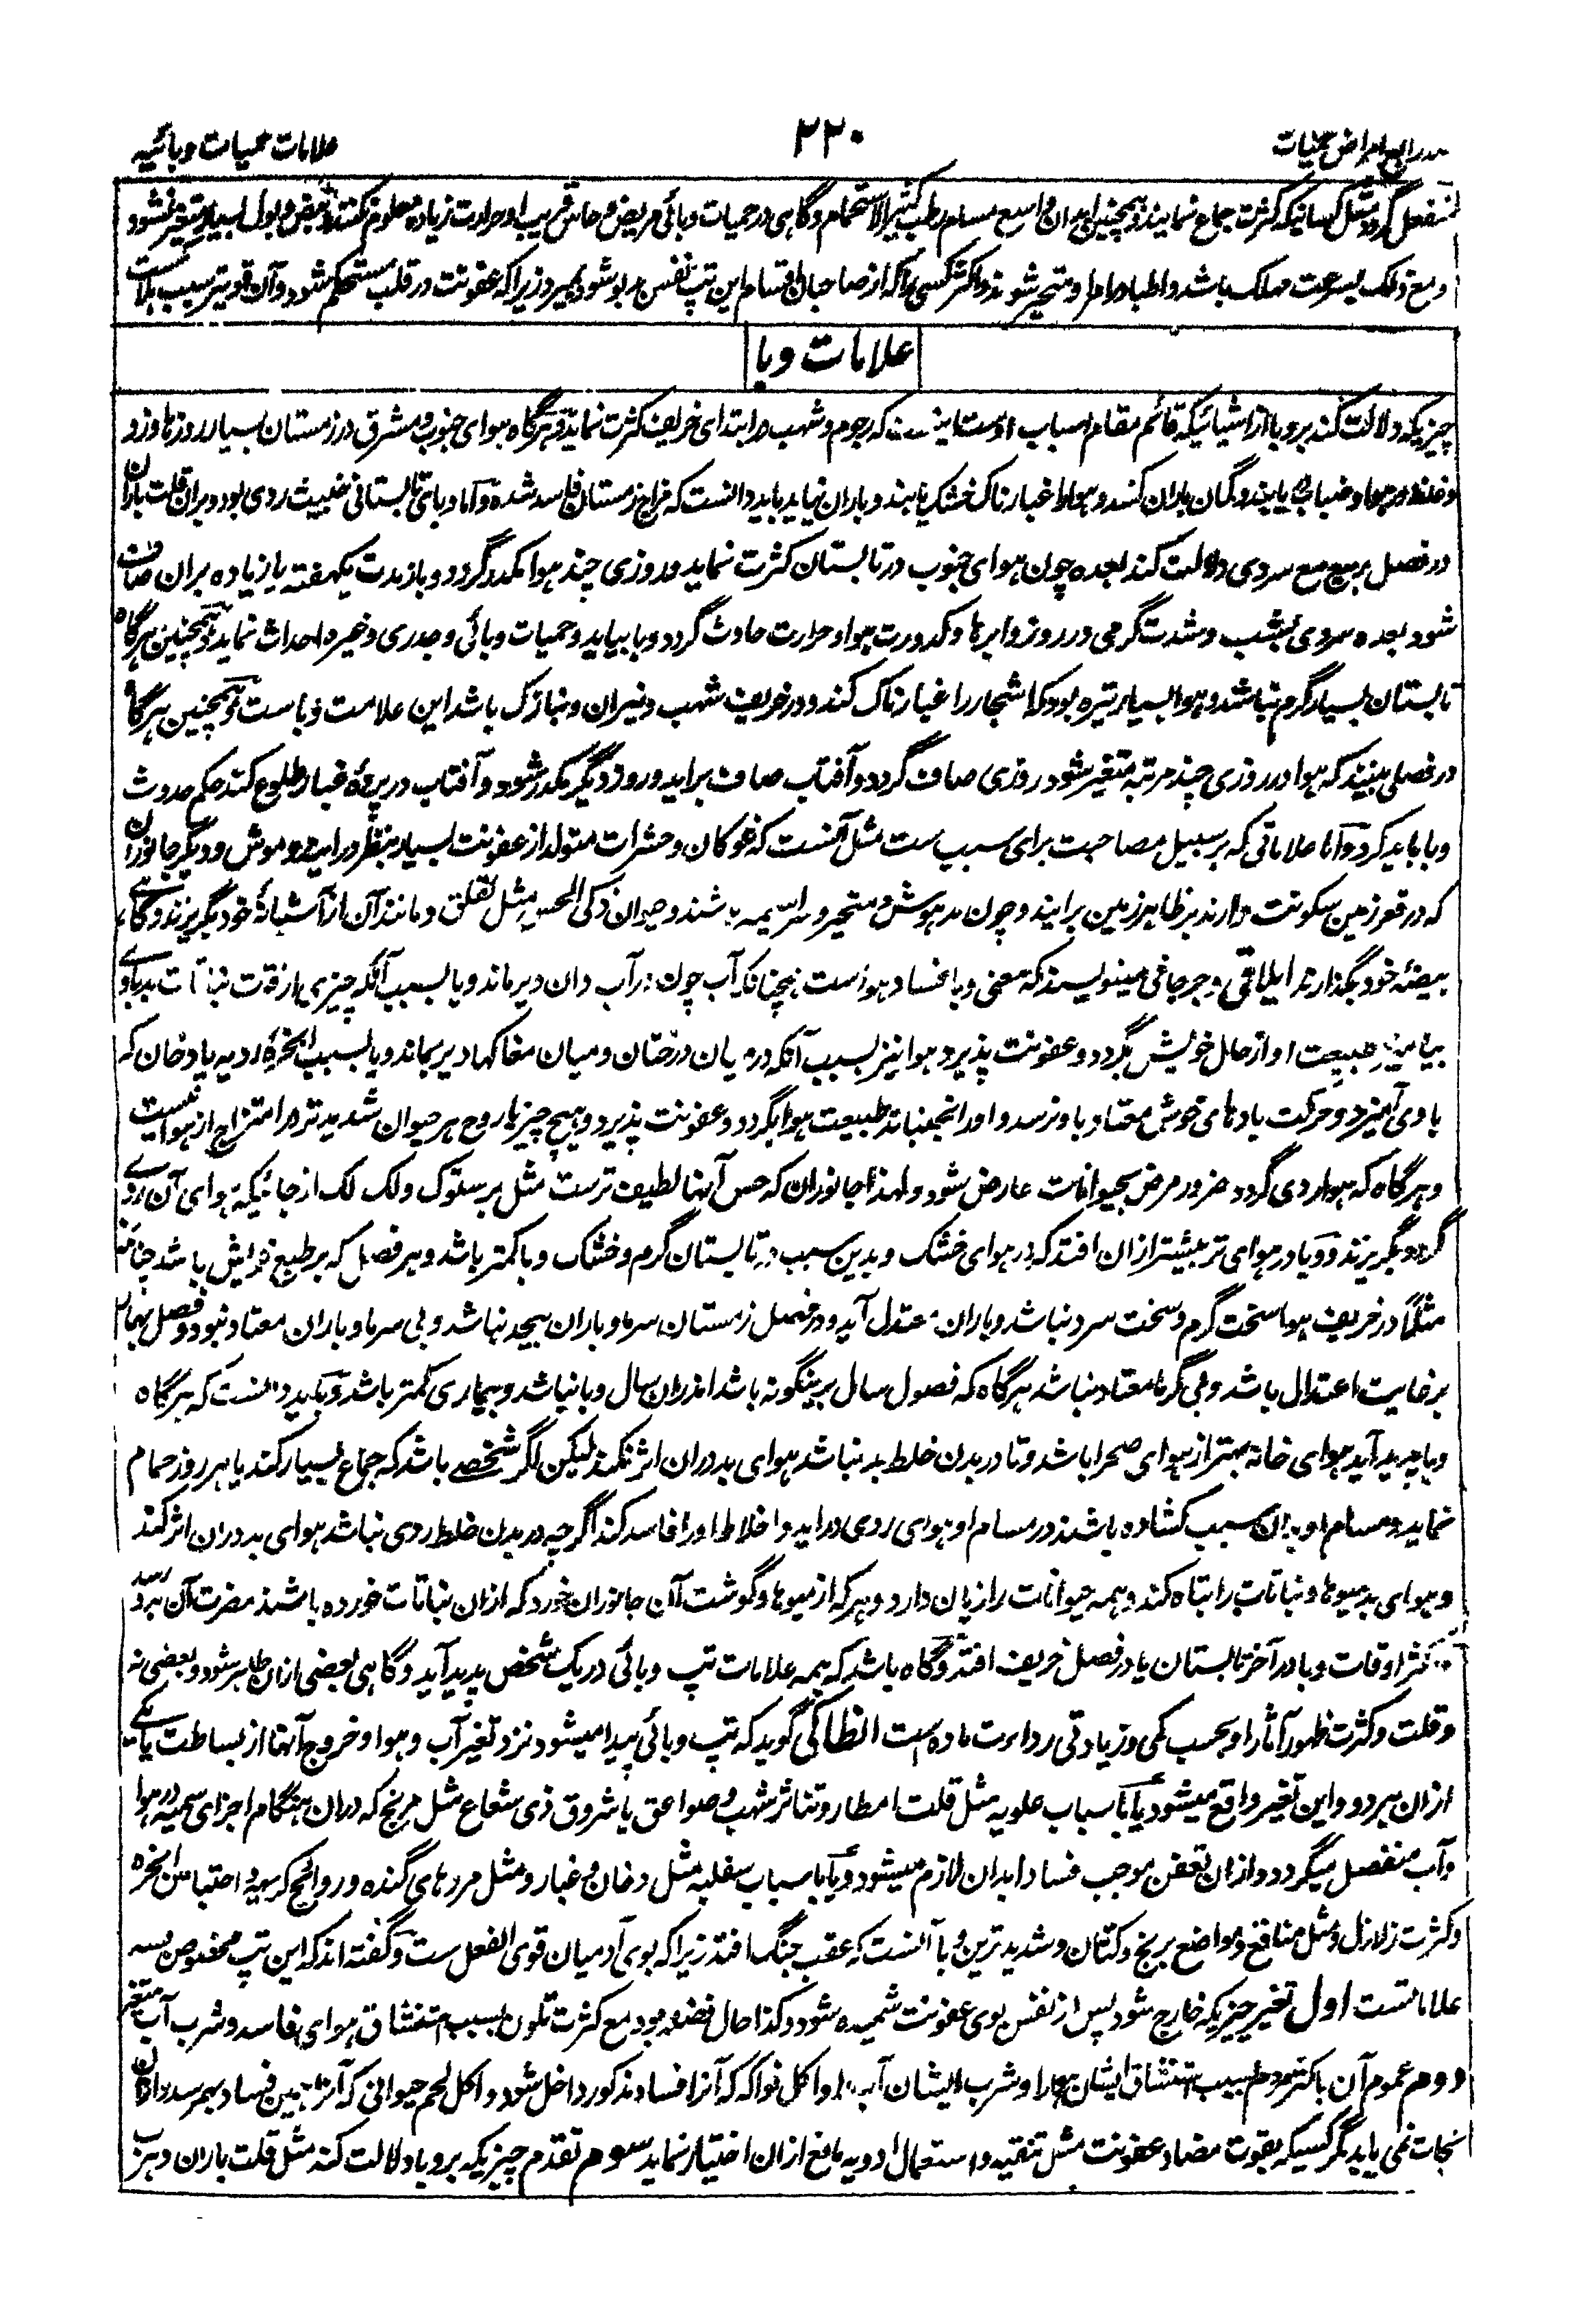 علامات حمیات وبائیه
۲۲۰
امراض حمیات
منفعل گردد مثل کسانیکه کثرت جماع نمایند و همچنین ابدان واسع مسام رطب کثیر الاستحمام و گاهی در حمیات وبائی مریض و حاس قریب او حرارت زیاده معلوم نکنند و نبض و بول بسیار متغیر نشود
و مع ذلک بسرعت مهلک باشد و اطبا در امر او متحیر شوند و اکثر کسی را که از صاحبان اقسام این تپ نفس بدبو شود بمیرد زیرا که عفونت در قلب مستحکم شود و آن قویتر سبب هلاکست
علامات وبا
چیزیکه دلالت کند بر وبا از اشیائیکه قائم مقام اسباب اوست اینست که رجوم و شهب در ابتدای خریف کثرت نماید و هرگاه هوای جنوب و مشرق در زمستان بسیار روزها وزد
و غلظ در هوا و ضباب یابند و گمان باران کنند و هوا را غبارناک خشک یابند و باران نیاید باید دانست که مزاج زمستان فاسد شده و اما وبای تابستانی خبیث ردی بود و بران قلت باران
در فصل ربیع مع سردی دلالت کند بعده چون هوای جنوب در تابستان کثرت نماید و روزی چند هوا مکدر گردد و باز مدت یکهفته یا زیاده بران صاف
شود بعده سردی بشب و شدت گرمی در روز و ابرها و کدورت هوا و حرارت حادث گردد وبا بیاید و حمیات وبائی و جدری و غیره احداث نماید و همچنین هرگاه
تابستان بسیار گرم نباشد و هوا بسیار تیره بود که اشجار را غبارناک کند و در خریف شهب و نیران و نیازک باشد این علامت وباست و همچنین هرگاه
در فصلی بینند که هوا در روزی چند مرتبه متغیر شود روزی صاف گردد و آفتاب صاف براید و روز دیگر مکدر شود و آفتاب در پردۀ غبار طلوع کند حکم حدوث
وبا باید کرد و اما علاماتی که بر سبیل مصاحبت برای سبب ست مثل آنست که غوکان و حشرات متولد از عفونت بسیار بنظر درایند و موش و دیگر جانوران
که در قعر زمین سکونت دارند بر ظاهر زمین برایند و چون مدهوش و متحیر و سراسیمه باشند و حیوان ذکی الحس مثل لقلق و مانند آن از آشیانۀ خود بگریزند و گاهی
بیضۀ خود بگذارند ایلاقی و جرجانی مینویسند که معنی وبا فساد هواست همچنانکه آب چون در آب دان دیر ماند و یا بسبب آنکه چیزی از نباتات بد باو
بیامیزد طبیعت او از حال خویش بگردد و عفونت پذیرد هوا نیز بسبب آنکه در میان درختان و میان مغاکها دیر بماند و یا بسبب ابخرۀ ردیه یا دخان که
با وی آمیزد و حرکت بادهای خوش معتاد باو نرسد و او را نجنباند طبیعت هوا بگردد و عفونت پذیرد و هیچ چیز با روح هر حیوان شدیدتر در امتزاج از هوا نیست
و هرگاه که هوا ردی گردد ضرور مرض بحیوانات عارض شود و لهذا جانوران که حس آنها لطیف ترست مثل پرستوک و لک لک از جائیکه هوای آن ردی
گردد بگریزند و وبا در هوای تر بیشتر ازان افتد که در هوای خشک و بدین سبب در تابستان گرم و خشک وبا کمتر باشد و هر فصل که بر طبع خویش باشد چنانچه
مثلاً در خریف هوا سخت گرم و سخت سرد نباشد و باران معتدل آید و در فصل زمستان سرما و باران بیحد نباشد و بی سرما و باران معتاد نبود و فصل بهار
بر غایت اعتدال باشد و بی گرما معتاد نباشد هرگاه که فصول سال برینگونه باشد اندران سال وبا نباشد و بیماری کمتر باشد و باید دانست که هرگاه
وبا پدید آید هوای خانه بهتر از هوای صحرا باشد و تا در بدن خلط بد نباشد هوای بد دران اثر نکند لیکن اگر شخصی باشد که جماع بسیار کند یا هر روز حمام
نماید و مسام او بدان سبب کشاده باشند در مسام او هوای ردی دراید و اخلاط او را فاسد کند اگرچه در بدن خلط ردی نباشد هوای بد دران اثر کند
و هوای بد میوها و نباتات را تباه کند و همه حیوانات را زیان دارد و هر که از میوها و گوشت آن جانوران خورد که ازان نباتات خورده باشند مضرت آن بدو رسد
اکثر اوقات وبا در آخر تابستان یا در فصل خریف افتد و گاه باشد که همه علامات تپ وبائی در یک شخص پدید آید و گاهی بعضی ازان ظاهر شود و بعضی نه
و قلت و کثرت ظهور آثار او بحسب کمی و زیادتی رداءت ماده است انطاکی گوید که تپ وبائی پیدا میشود نزد تغیر آب و هوا و خروج آنها از بساطت یا یکی
ازان هر دو و این تغیر واقع میشود یا باسباب علویه مثل قلت امطار و تناثر شهب و صواعق یا شروق ذی شعاع مثل مریخ که دران هنگام اجزای سمیه در هوا
و آب منفصل میگردد و ازان تعفن موجب فساد ابدان لازم میشود و یا باسباب سفلیه مثل دخان و غبار و مثل مردهای گنده و روائح کریهه و احتباس ابخره
و کثرت زلازل و مثل مناقع و مواضع برنج و کتان و شدیدترین وبا آنست که عقب جنگ افتد زیرا که بوی آدمیان قوی الفعل ست و گفته اند که این تپ مخصوص بسه
علامتست اول تغیر چیزیکه خارج شود پس از نفس بوی عفونت شمیده شود و کذا حال فضله بود مع کثرت تلون بسبب استنشاق هوای فاسد و شرب آب متغیر
دوم عموم آن باکثر مردم بسبب استنشاق ایشان هوا را و شرب ایشان آب را و اکل فواکه که آنرا فساد مذکور داخل شود و اکل لحم حیوانی که آنرا همین فساد بهم رسد و ازان
نجات نمی یابد مگر کسیکه بقوت مضاد عفونت مثل تنقیه و استعمال ادویه مانع ازان اختیار نماید سوم تقدم چیزیکه بر وبا دلالت کند مثل قلت باران و هرب